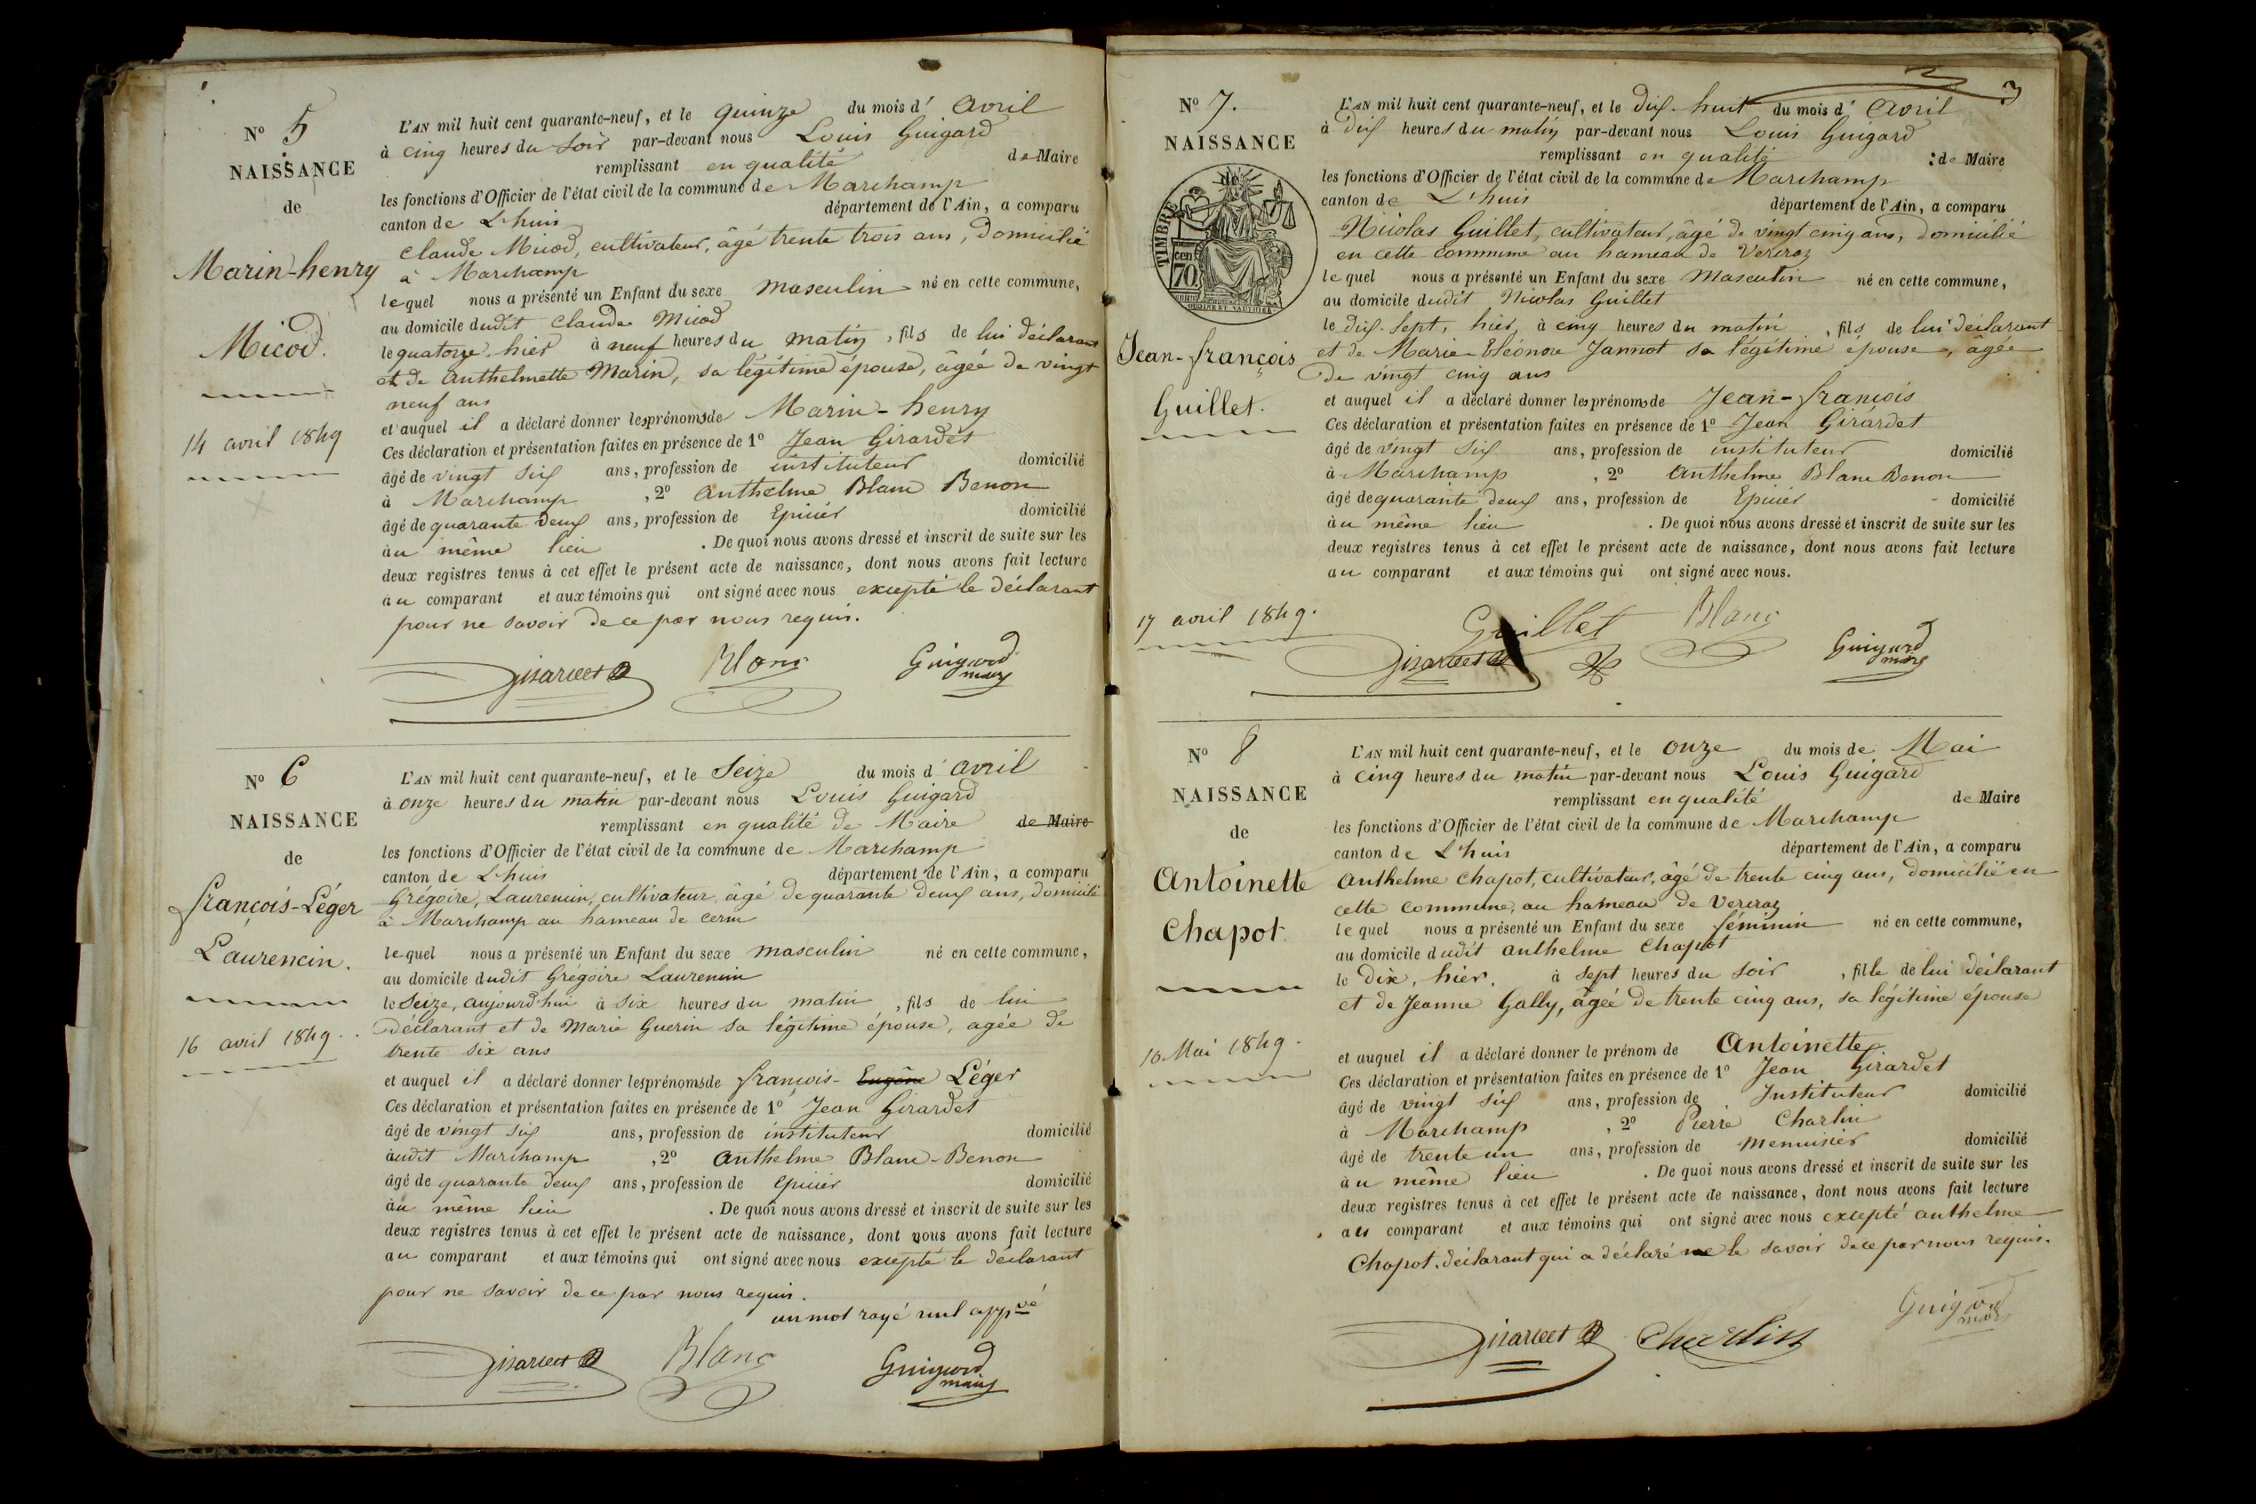 N° 5
NAISSANCE
de
Marin-henry
Micod.
14 avril 1849
L'AN mil huit cent quarante-neuf, et le quinze du mois d' avril
à cinq heures du soir par-devant nous Louis Guigard
remplissant en qualité de Maire
les fonctions d'Officier de l'état civil de la commune de Marchamp
canton de L'huis département de l'Ain, a comparu
Claude Micod, cultivateur, âgé trente trois ans, domicilié
à Marchamp
lequel nous a présenté un Enfant du sexe masculin né en cette commune,
au domicile dudit Claude Micod
le quatorze hier à neuf heures du matin, fils de lui déclarant
et de Anthelmette Marin, sa légitime épouse, âgée de vingt
neuf ans
et auquel il a déclaré donner les prénoms de Marin-henry
Ces déclaration et présentation faites en présence de 1° Jean Girardet
âgé de vingt six ans, profession de instituteur domicilié
à Marchamp, 2° Anthelme Blanc Benon
âgé de quarante deux ans, profession de Epicier domicilié
au même lieu. De quoi nous avons dressé et inscrit de suite sur les
deux registres tenus à cet effet le présent acte de naissance, dont nous avons fait lecture
au comparant et aux témoins qui ont signé avec nous excepté le déclarant
pour ne savoir de ce par nous requis.
Girardet Blanc Guigard
maire
N° 6
NAISSANCE
de
françois-Léger
Laurencin.
16 avril 1849.
L'AN mil huit cent quarante-neuf, et le Seize du mois d' avril
à onze heures du matin par-devant nous Louis Guigard
remplissant en qualité de Maire de Maire
les fonctions d'Officier de l'état civil de la commune de Marchamp
canton de L'huis département de l'Ain, a comparu
Grégoire, Laurencin, cultivateur, âgé de quarante deux ans, domicilié
à Marchamp au hameau de cerin
lequel nous a présenté un Enfant du sexe masculin né en cette commune,
au domicile dudit Grégoire Laurencin
le Seize, aujourd'hui à six heures du matin, fils de lui
déclarant et de Marie Guerin sa légitime épouse, agée de
trente six ans
et auquel il a déclaré donner les prénoms de françois- Eugène Léger
Ces déclaration et présentation faites en présence de 1° Jean Girardet
âgé de vingt six ans, profession de instituteur domicilié
àudit Marchamp, 2° Anthelme Blanc-Benon
âgé de quarante deux ans, profession de Epicier domicilié
àu même lieu. De quoi nous avons dressé et inscrit de suite sur les
deux registres tenus à cet effet le présent acte de naissance, dont nous avons fait lecture
au comparant et aux témoins qui ont signé avec nous excepté le déclarant
pour ne savoir de ce par nous requis.
un mot rayé nul appvé
Girardet Blanc Guigard
maire
3
N° 7.
NAISSANCE
de
TIMBRE
70 cen
Jean-françois
Guillet.
17 avril 1849.
L'AN mil huit cent quarante-neuf, et le dix-huit du mois d' avril
à dix heures du matin par-devant nous Louis Guigard
remplissant en qualité de Maire
les fonctions d'Officier de l'état civil de la commune de Marchamp
canton de L'huis département de l'Ain, a comparu
Nicolas Guillet, cultivateur, âgé de vingt cinq ans, domicilié
en cette commune au hameau de Vercraz
lequel nous a présenté un Enfant du sexe Masculin né en cette commune,
au domicile dudit Nicolas Guillet
le dix-sept, hier, à cinq heures du matin, fils de lui déclarant
et de Marie-Eléonore Jannot sa légitime épouse, âgée
de vingt cinq ans
et auquel il a déclaré donner les prénoms de Jean-françois
Ces déclaration et présentation faites en présence de 1° Jean Girardet
âgé de vingt six ans, profession de instituteur domicilié
à Marchamp, 2° Anthelme Blanc Benon
âgé de quarante deux ans, profession de Epicier domicilié
àu même lieu. De quoi nous avons dressé et inscrit de suite sur les
deux registres tenus à cet effet le présent acte de naissance, dont nous avons fait lecture
au comparant et aux témoins qui ont signé avec nous.
Guillet Blanc
Girardet Guigard
maire
N° 8
NAISSANCE
de
Antoinette
Chapot
10 Mai 1849.
L'AN mil huit cent quarante-neuf, et le onze du mois de Mai
à cinq heures du matin par-devant nous Louis Guigard
remplissant en qualité de Maire
les fonctions d'Officier de l'état civil de la commune de Marchamp
canton de L'huis département de l'Ain, a comparu
Anthelme Chapot, cultivateur, âgé de trente cinq ans, domicilié en
cette commune, au hameau de Vercraz
lequel nous a présenté un Enfant du sexe féminin né en cette commune,
au domicile dudit Anthelme Chapot
le dix, hier, à sept heures du soir, fille de lui déclarant
et de Jeanne Gally, âgée de trente cinq ans, sa légitime épouse
et auquel il a déclaré donner le prénom de Antoinette
Ces déclaration et présentation faites en présence de 1° Jean Girardet
âgé de vingt six ans, profession de Instituteur domicilié
à Marchamp, 2° Pierre Charlin
âgé de trente un ans, profession de Menuisier domicilié
àu même lieu. De quoi nous avons dressé et inscrit de suite sur les
deux registres tenus à cet effet le présent acte de naissance, dont nous avons fait lecture
au comparant et aux témoins qui ont signé avec nous excepté anthelme
Chapot, déclarant qui a déclaré ne le savoir de ce par nous requis.
Girardet Charlin Guigard
maire